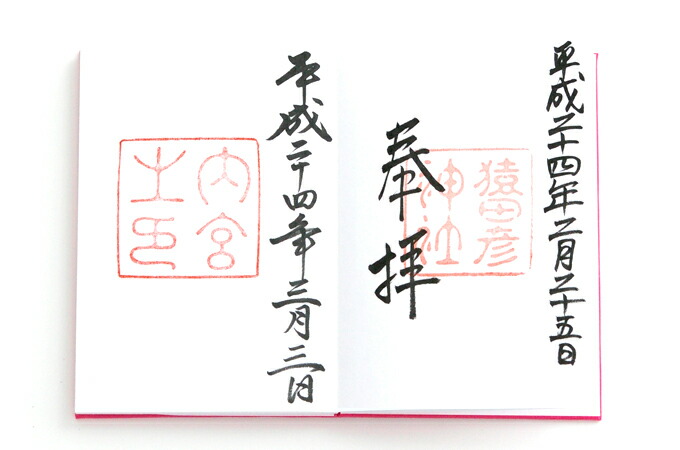 平成二十四年二月二十五日
奉拝
猿田彦
神社
平成二十四年三月三日
内宮
之印